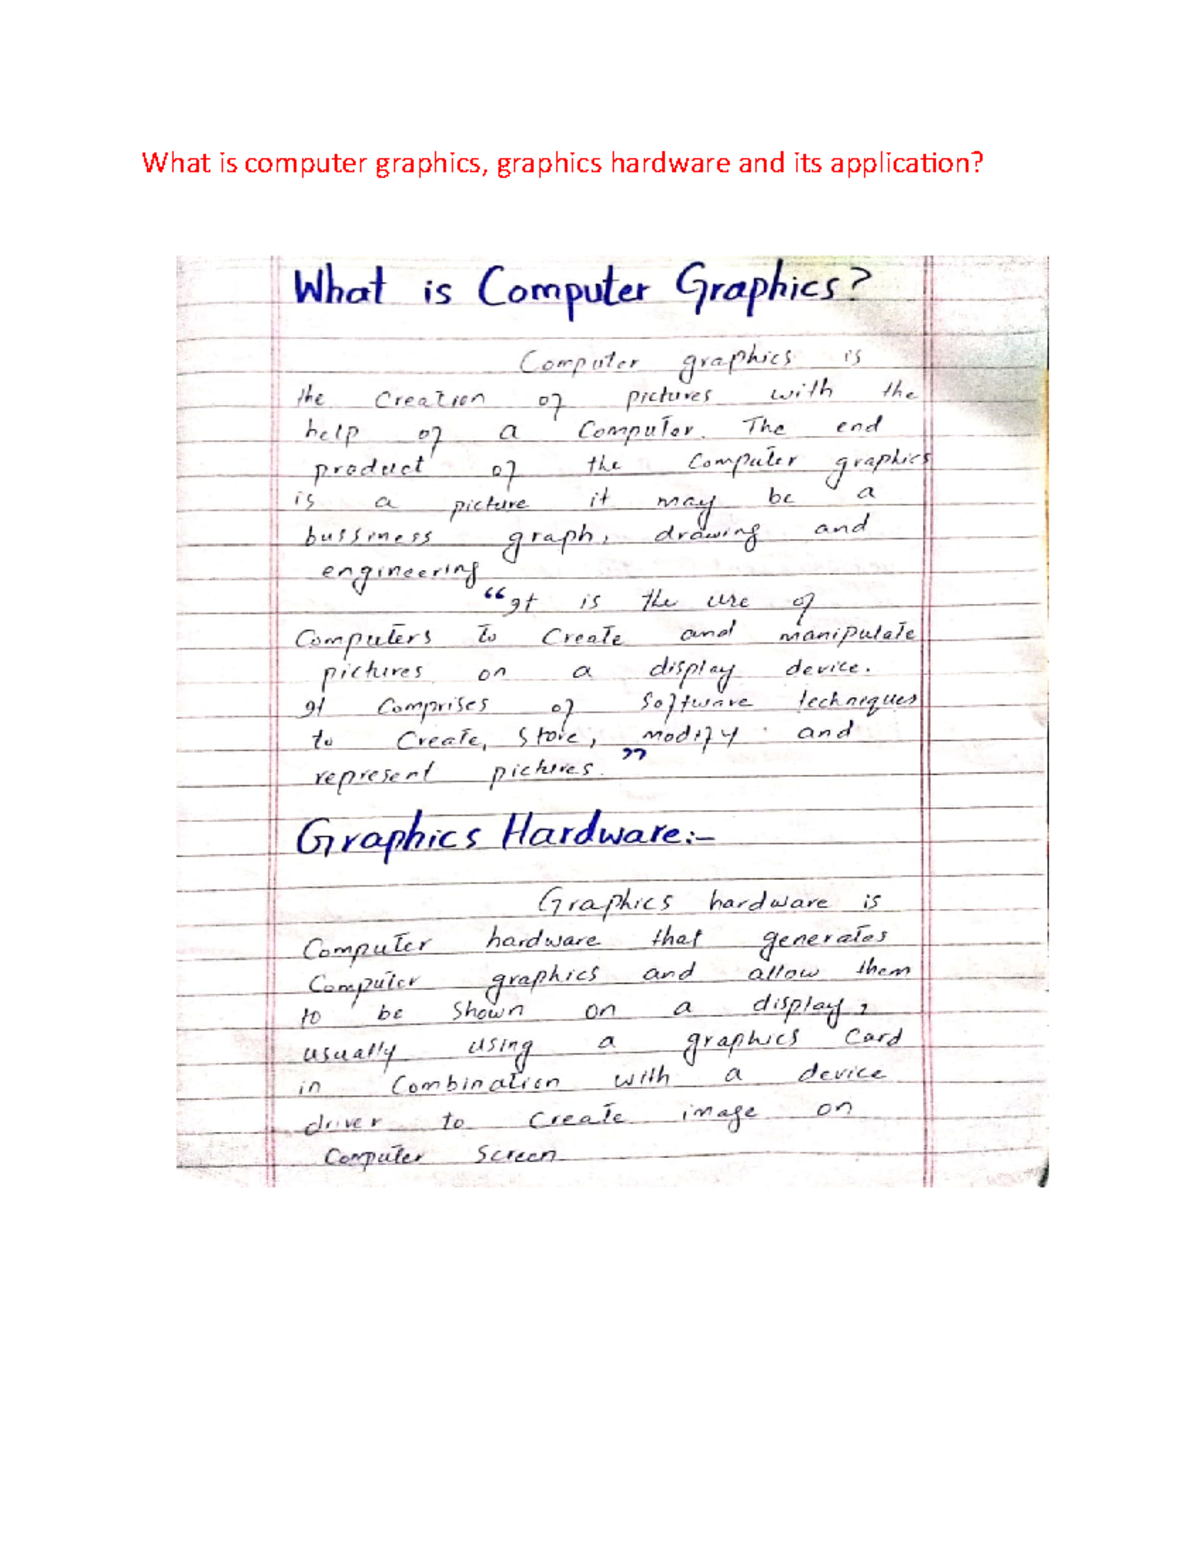 What is computer graphics, graphics hardware and its application?
What is Computer Graphics?
Computer graphics is
the Creation of pictures with the
help of a Computer. The end
product of the Computer graphics
is a picture it may be a
bussiness graph, drawing and
engineering
“It is the use of
Computers to Create and manipulate
pictures on a display device.
It Comprises of Software techneques
to Create, Store, modify and
represent pictures.”
Graphics Hardware:-
Graphics hardware is
Computer hardware that generates
Computer graphics and allow them
to be Shown on a display,
usually using a graphics Card
in Combination with a device
driver to Create image on
Computer Screen